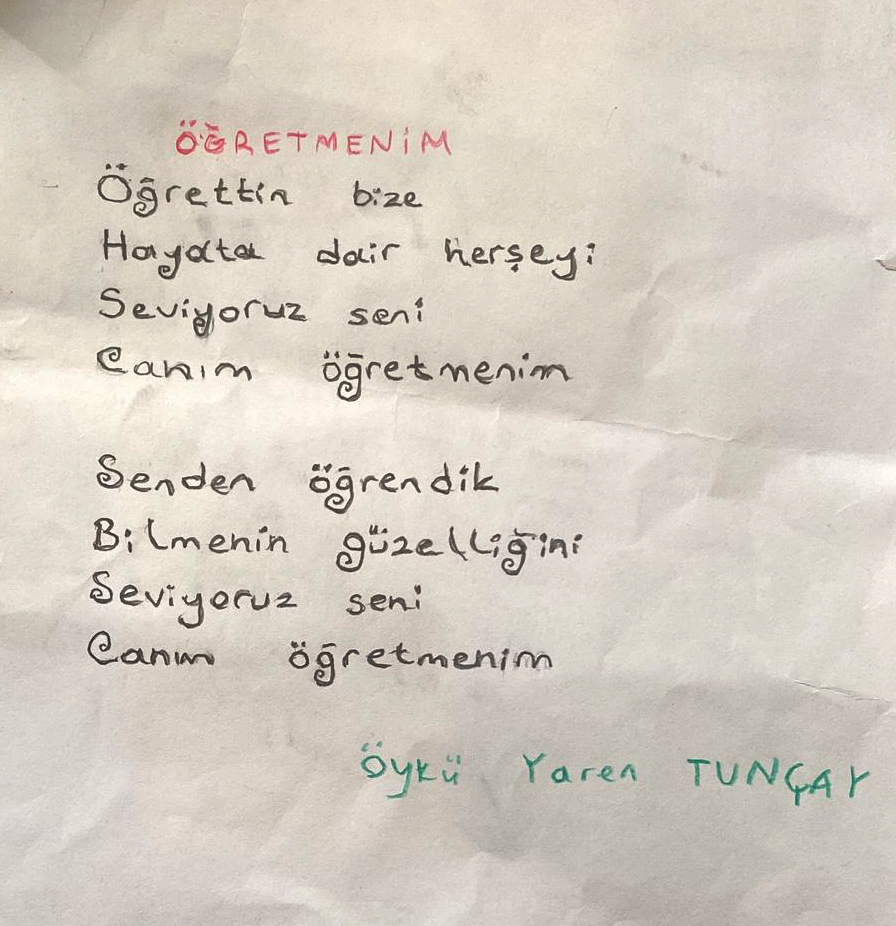 ÖĞRETMENİM
Öğrettin bize
Hayata dair herşeyi
Seviyoruz seni
Canım öğretmenim
Senden öğrendik
Bilmenin güzelliğini
Seviyoruz seni
Canım öğretmenim
Öykü Yaren TUNÇAY